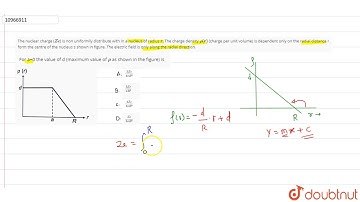 10966911
The nuclear charge (Ze) is non uniformly distribute with in a nucleus of radius R. The charge density ρ(r) (charge per unit volume) is dependent only on the radial distance r
form the centre of the nucleus s shown in figure. The electric field is only along the radial direction.
For a=0 the value of d (maximum value of ρ as shown in the figure) is
ρ (r)
d
a
R
r
A.
B.
C.
D.
ρ
d
R
r→
f(r) = -d/R · r + d
y = mx + c
Ze = ∫₀ᴿ
doubtnut